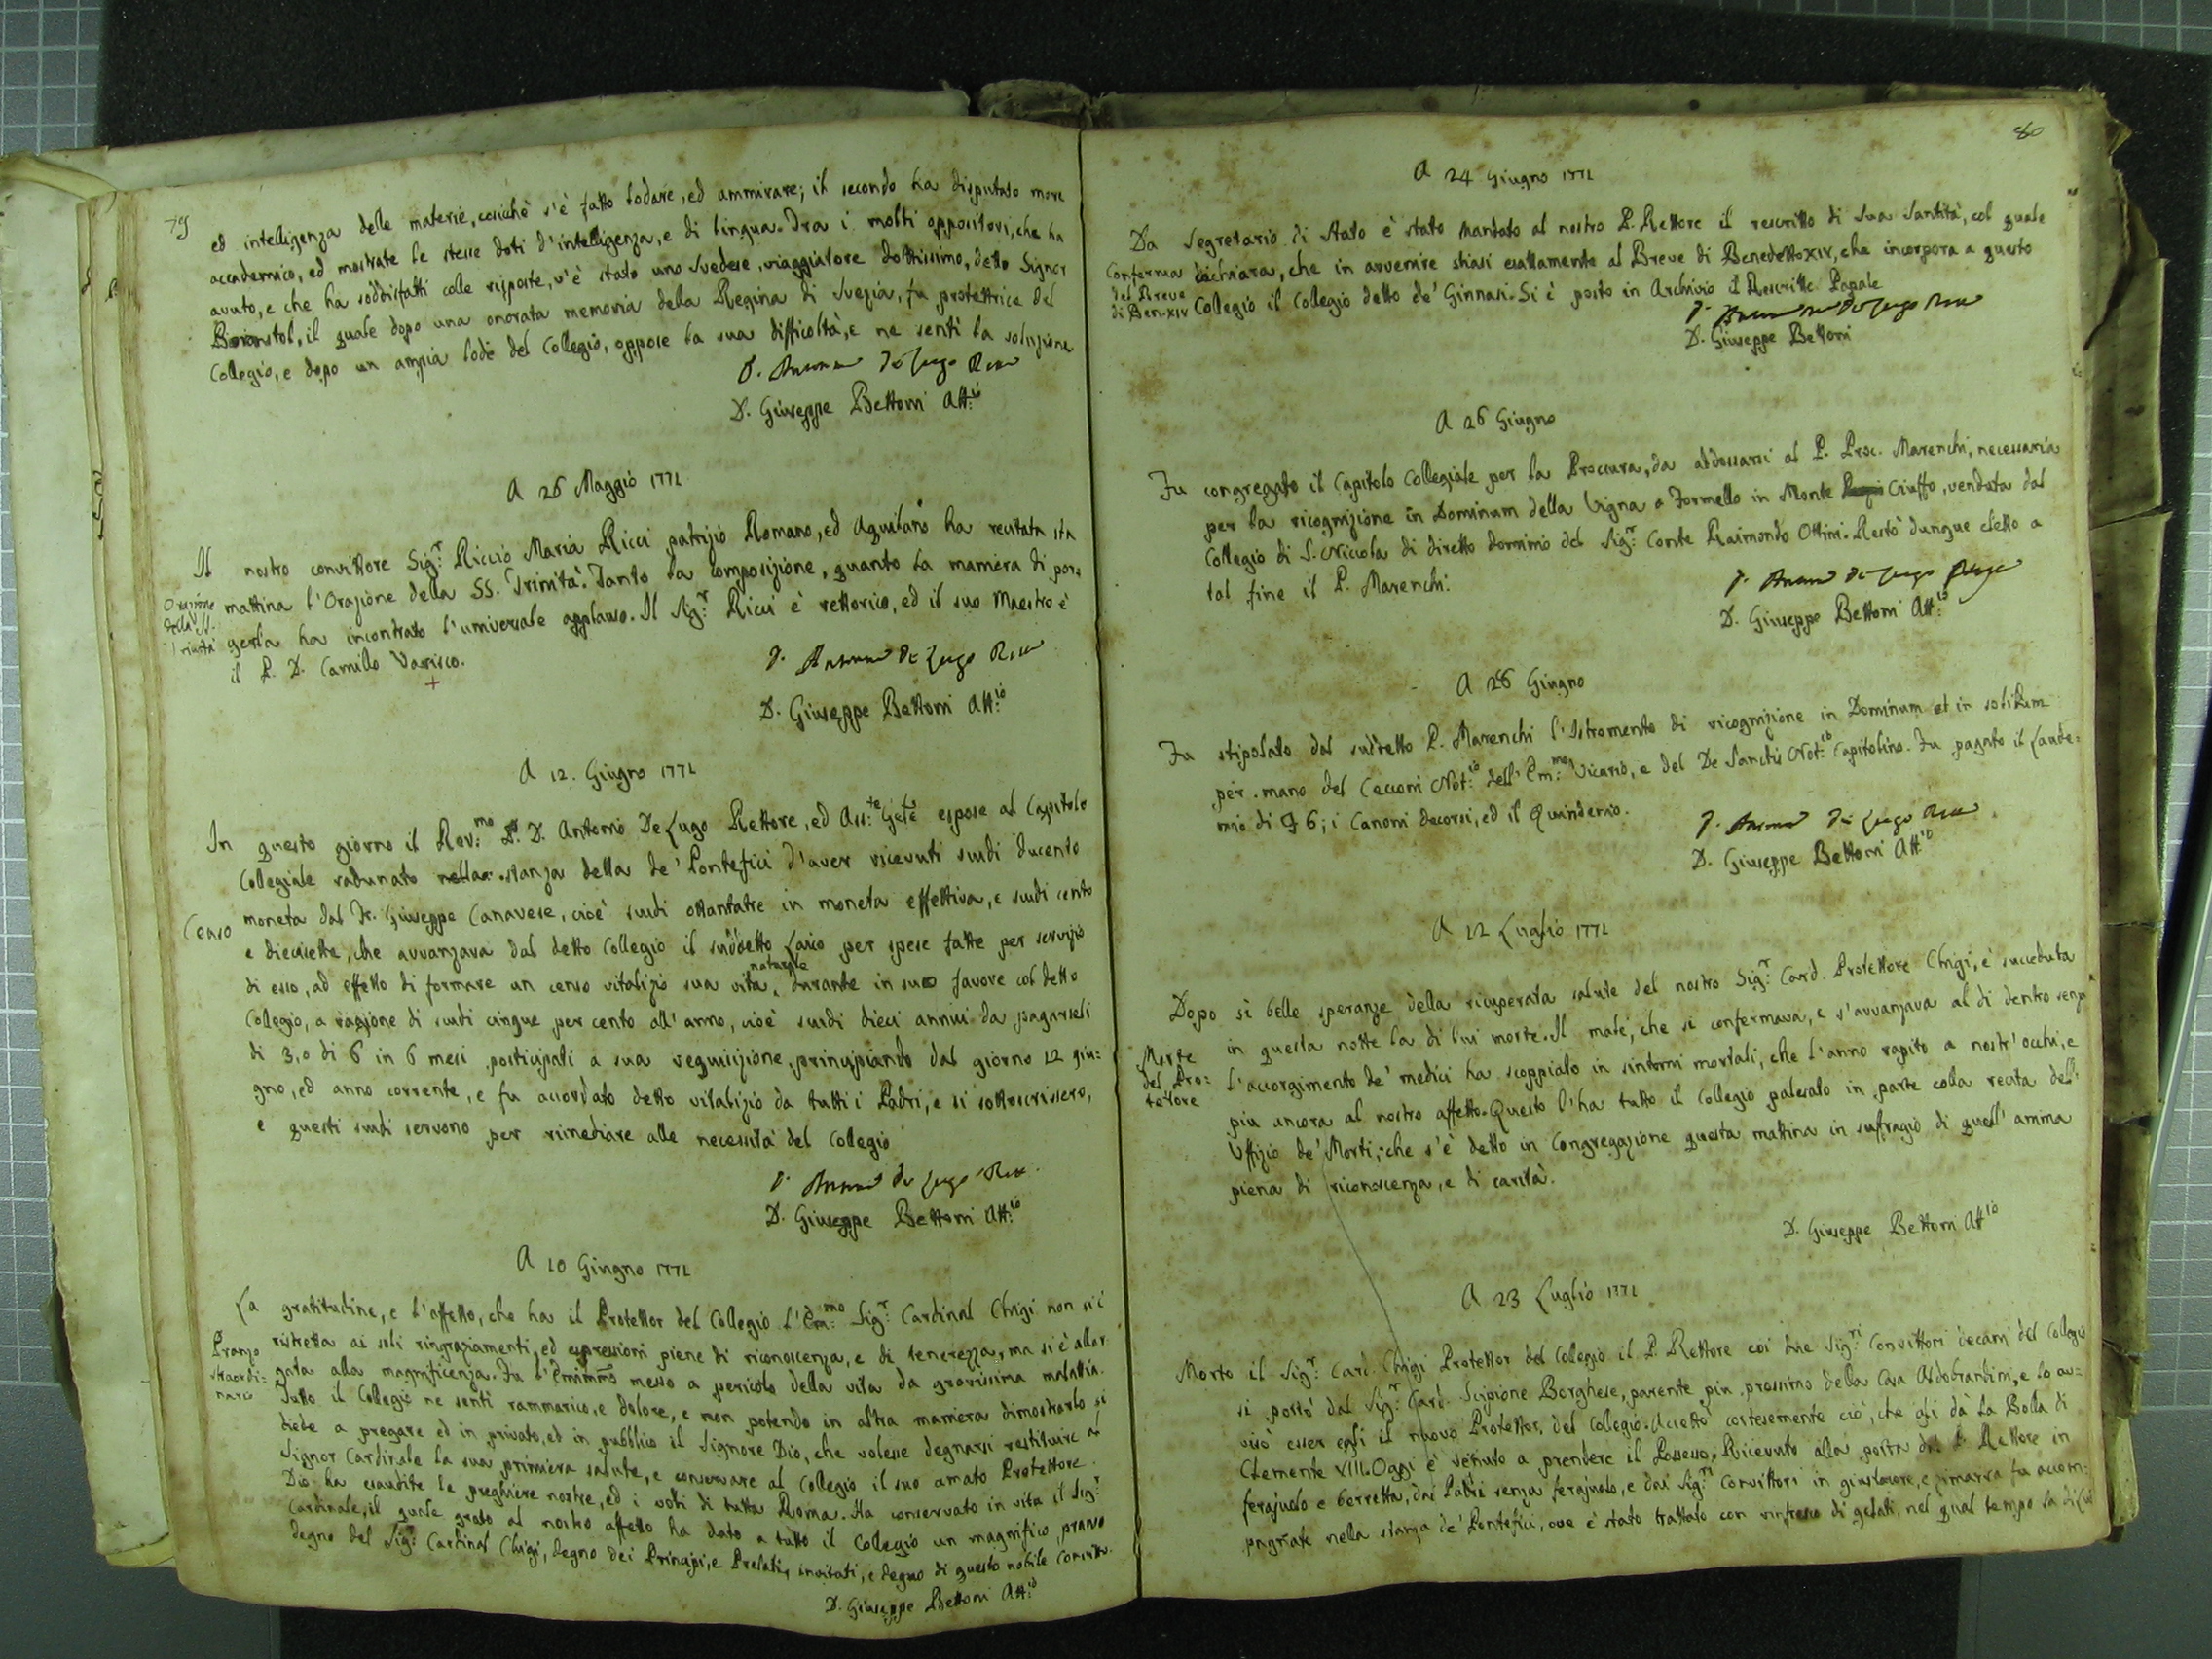 79
ed intelligenza delle materie, cosichè s'è fatto lodare, ed ammirare; il secondo ha disputato more
accademico, ed mostrate le stesse doti d'intelligenza, e di lingua. Fra i molti oppositori, che ha
avuto, e che ha soddisfatti colle risposte, v'è stato uno Svedese, viaggiatore dottissimo, detto Signor
il quale dopo una onorata memoria della Regina di Svezia, fu protettrice del
Collegio, e dopo un ampia lode del Collegio, oppose la sua difficoltà, e ne sentì la soluzione
D. Antonio De Lugo Rett
D. Giuseppe Bettoni Att:io
A 26 Maggio 1771
Il nostro convittore Sig:r Riccio Maria Ricci patrizio Romano, ed Aquilano ha recitata sta
Orazione
della SS.
Trinità
mattina l'Orazione della SS. Trinità. Tanto la composizione, quanto la maniera di por:
gerla ha incontrato l'universale applauso. Il Sig:r Ricci è rettorico, ed il suo Maestro è
il P. D. Camillo Varisco.
D. Antonio De Lugo Rett
D. Giuseppe Bettoni Att:io
A 12. Giugno 1771
In questo giorno il Rev:mo P. D. Antonio De Lugo Rettore, ed Ass:te espose al Capitolo
Collegiale radunato nella stanza detta de' Pontefici d'aver ricevuti scudi ducento
Censo
moneta dal Fr. Giuseppe Canavese, cioè scudi ottantatre in moneta effettiva, e scudi cento
e diecisette, che avvanzava dal detto Collegio il suddetto Laico per spese fatte per servizio
di esso, ad effetto di formare un censo vitalizio sua vita naturale durante in suo favore col detto
Collegio, a ragione di scudi cinque per cento all'anno, cioè scudi dieci annui da pagarseli
di 3, o di 6 in 6 mesi posticipati a sua requisizione, principiando dal giorno 12 giu:
gno, ed anno corrente, e fu accordato detto vitalizio da tutti i Padri, e si sottoscrissero,
e questi scudi servono per rimediare alle necessità del Collegio
D. Antonio De Lugo Rett.
D. Giuseppe Bettoni Att:io
A 10 Giugno 1771
La gratitudine, e l'affetto, che ha il Protettor del Collegio l'Em:mo Sig:r Cardinal Chigi non si è
Pranzo
straordi:
nario
ristretta ai soli ringraziamenti, ed espressioni piene di riconoscenza, e di tenerezza, ma si è allar
gata alla magnificenza. Fu l'Eminmo messo a pericolo della vita da gravissima malattia.
Tutto il Collegio ne sentì rammarico, e dolore, e non potendo in altra maniera dimostrarlo si
diede a pregare ed in privato, ed in pubblico il Signore Dio, che volesse degnarsi restituire al
Signor Cardinale la sua primiera salute, e conservare al Collegio il suo amato Protettore.
Dio ha esaudite le preghiere nostre, ed i voti di tutta Roma. Ha conservato in vita il Sig:r
Cardinale, il quale grato al nostro affetto ha dato a tutto il Collegio un magnifico pranzo
degno del Sig:r Cardinal Chigi, degno dei Principi, e Prelati, invitati, e degno di questo nobile Convitto.
D. Giuseppe Bettoni Att:io
80
A 24 Giugno 1771
Da Segretario di Stato è stato mandato al nostro P. Rettore il rescritto di Sua Santità, col quale
Conferma
del Breve
di Ben. XIV
dichiara, che in avvenire stiasi esattamente al Breve di Benedetto XIV, che incorpora a questo
Collegio il Collegio detto de' Ginnasi. Si è posto in Archivio il Rescritto Papale
D. Antonio De Lugo Rett
D. Giuseppe Bettoni
A 26 Giugno
Fu congregato il Capitolo Collegiale per la Proccura, da addossarsi al P. Proc. Marenchi, necessaria
per la ricognizione in Dominum della Vigna a Formello in Monte Ciuffo, venduta dal
Collegio di S. Niccola di diretto dominio del Sig:r Conte Raimondo Ottini. Restò dunque eletto a
tal fine il P. Marenchi.
D. Antonio De Lugo
D. Giuseppe Bettoni Att:io
A 28 Giugno
Fu stipolato dal sudetto P. Marenchi l'Istromento di ricognizione in Dominum et in solidum
per mano del Cecconi Not:io dell'Em:mo Vicario, e del De Sanctis Not:io Capitolino. Fu pagato il Laude:
mio di 6; i Canoni decorsi, ed il Quindenio.
D. Antonio De Lugo Rett
D. Giuseppe Bettoni Att:io
A 12 Luglio 1771
Dopo sì belle speranze della ricuperata salute del nostro Sig:r Card. Protettore Chigi, è succeduta
in questa notte la di lui morte. Il male, che si confermava, e s'avvanzava al di dentro senza
Morte
del Pro:
tettore
l'accorgimento de' medici ha scoppiato in sintomi mortali, che l'anno rapito a nostr'occhi, e
piu ancora al nostro affetto. Questo l'ha tutto il Collegio palesato in parte colla recita dell'
Uffizio de' Morti, che s'è detto in Congregazione questa mattina in suffragio di quell'anima
piena di riconoscenza, e di carità.
D. Giuseppe Bettoni Att:io
A 23 Luglio 1771
Morto il Sig:r Card. Chigi Protettor del Collegio il P. Rettore coi due Sig:ri Convittori decani del Collegio
si portò dal Sig:r Card. Scipione Borghese, parente piu prossimo della Casa Aldobrandini, e lo av=
visò esser egli il nuovo Protettor, del Collegio. Accettò cortesemente ciò, che gli dà la Bolla di
Clemente VIII. Oggi è venuto a prendere il Possesso. Ricevuto alla porta dal P. Rettore in
ferajuolo e berretta, dai Padri senza ferajuolo, e dai Sig:ri Convittori in giustacore, e zimarra fu accom:
pagnato nella stanza de' Pontefici, ove è stato trattato con rinfresco di gelati, nel qual tempo la di lui